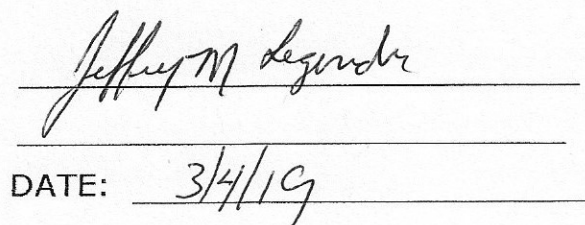 Jeffrey M Legendre
DATE: 3/4/19